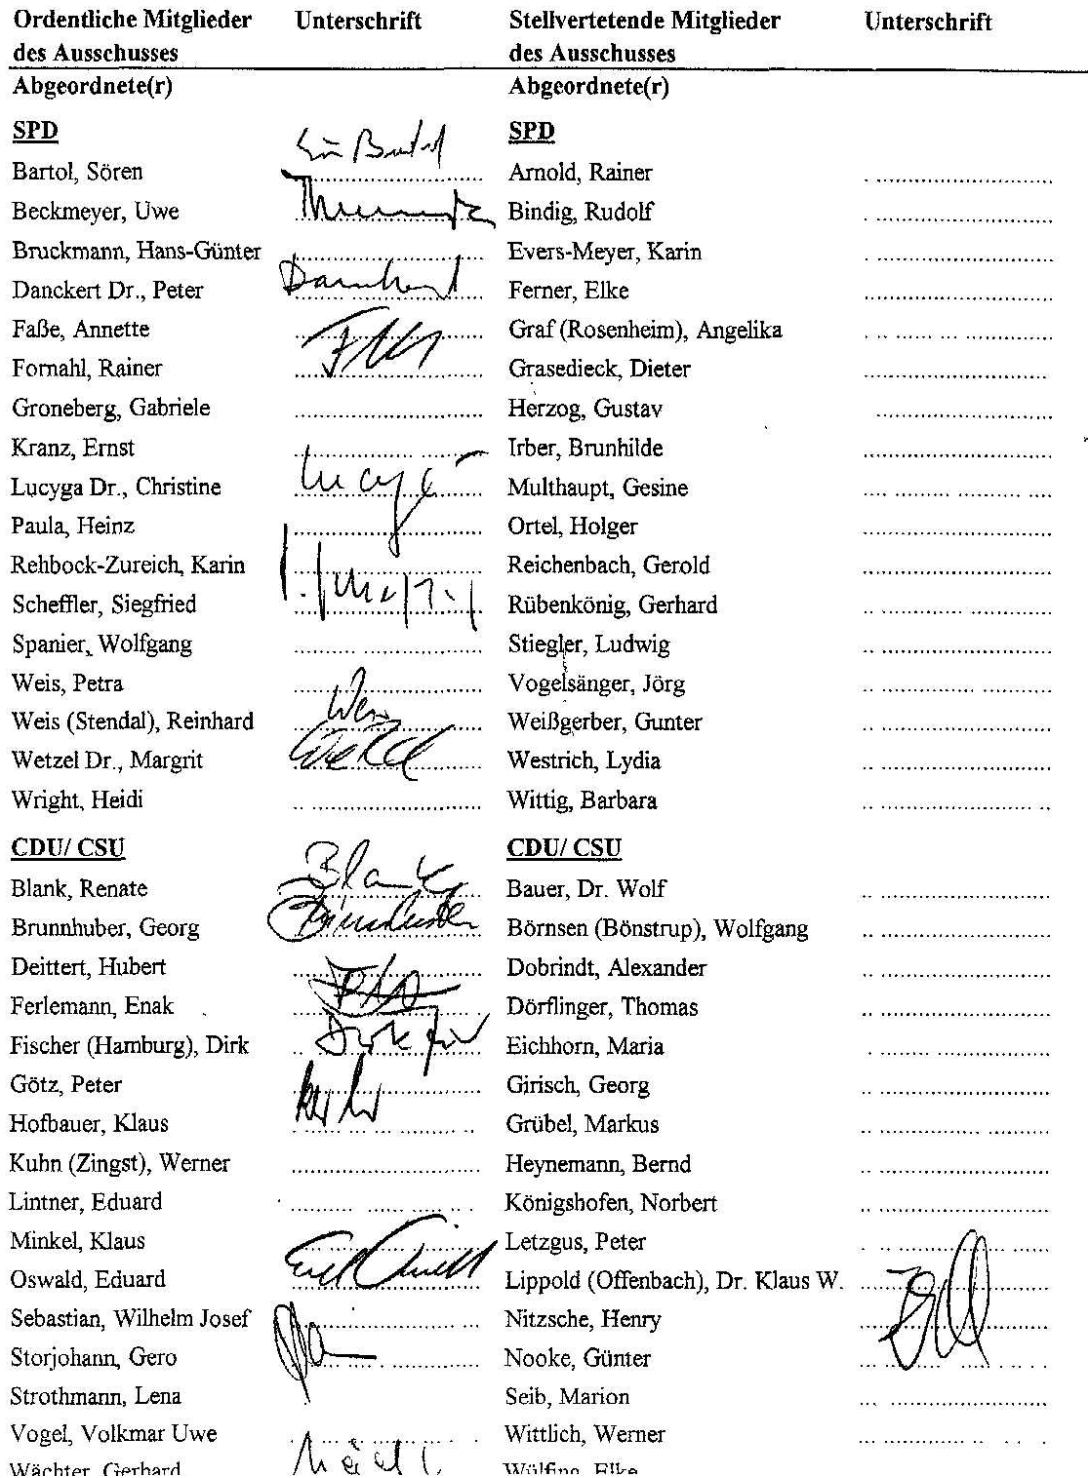 Ordentliche Mitglieder Unterschrift Stellvertetende Mitglieder Unterschrift
des Ausschusses des Ausschusses
Abgeordnete(r) Abgeordnete(r)
SPD SPD
Bartol, Sören Arnold, Rainer
Beckmeyer, Uwe Bindig, Rudolf
Bruckmann, Hans-Günter Evers-Meyer, Karin
Danckert Dr., Peter Ferner, Elke
Faße, Annette Graf (Rosenheim), Angelika
Fornahl, Rainer Grasedieck, Dieter
Groneberg, Gabriele Herzog, Gustav
Kranz, Ernst Irber, Brunhilde
Lucyga Dr., Christine Multhaupt, Gesine
Paula, Heinz Ortel, Holger
Rehbock-Zureich, Karin Reichenbach, Gerold
Scheffler, Siegfried Rübenkönig, Gerhard
Spanier, Wolfgang Stiegler, Ludwig
Weis, Petra Vogelsänger, Jörg
Weis (Stendal), Reinhard Weißgerber, Gunter
Wetzel Dr., Margrit Westrich, Lydia
Wright, Heidi Wittig, Barbara
CDU/ CSU CDU/ CSU
Blank, Renate Blank Bauer, Dr. Wolf
Brunnhuber, Georg Börnsen (Bönstrup), Wolfgang
Deittert, Hubert Dobrindt, Alexander
Ferlemann, Enak Dörflinger, Thomas
Fischer (Hamburg), Dirk Eichhorn, Maria
Götz, Peter Girisch, Georg
Hofbauer, Klaus Grübel, Markus
Kuhn (Zingst), Werner Heynemann, Bernd
Lintner, Eduard Königshofen, Norbert
Minkel, Klaus Letzgus, Peter
Oswald, Eduard Lippold (Offenbach), Dr. Klaus W.
Sebastian, Wilhelm Josef Nitzsche, Henry
Storjohann, Gero Nooke, Günter
Strothmann, Lena Seib, Marion
Vogel, Volkmar Uwe Wittlich, Werner
Wächter, Gerhard Wülfing, Elke